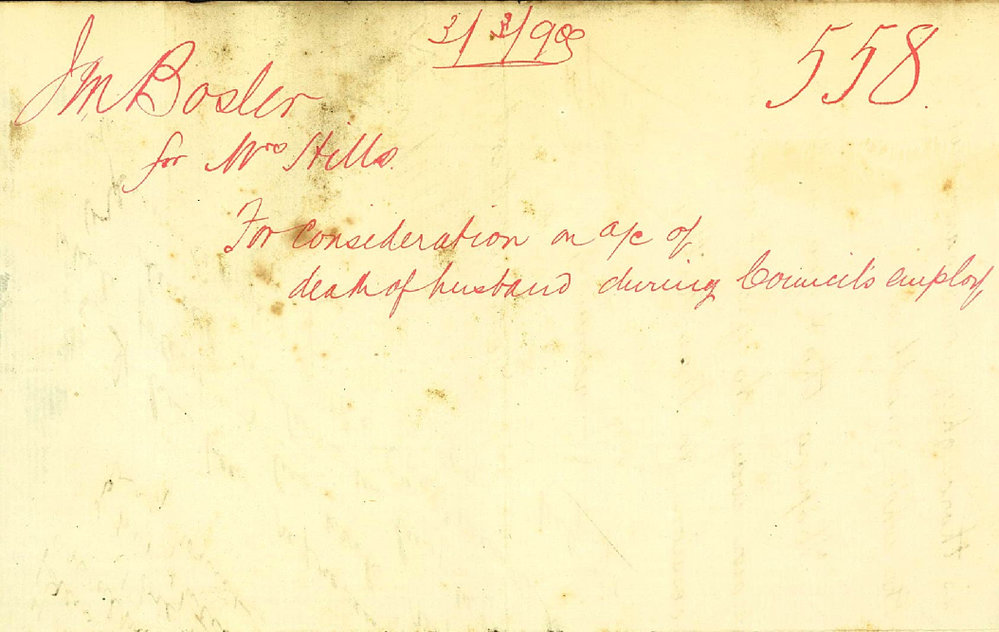 3/3/98
558
J M Bosler
for Mrs Hills
For consideration on a/c of
death of husband during Council's employ